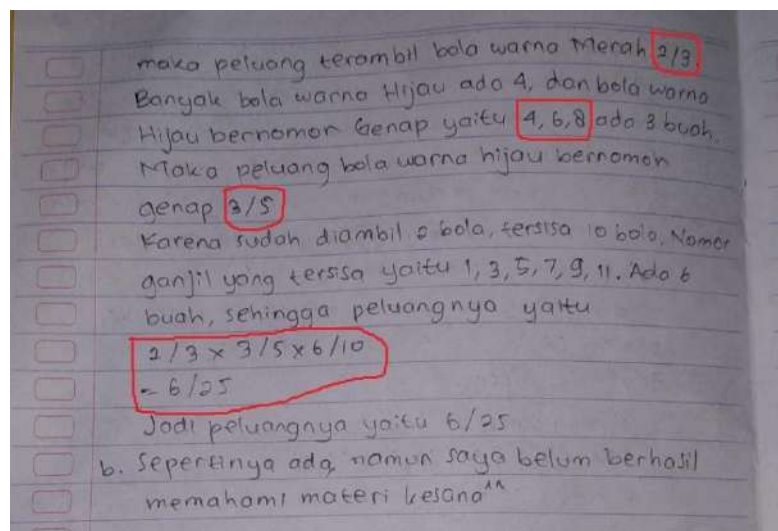 maka peluang terambil bola warna Merah 2/3.
Banyak bola warna Hijau ada 4, dan bola warna
Hijau bernomor Genap yaitu 4, 6, 8 ada 3 buah.
Maka peluang bola warna hijau bernomor
genap 3/5
Karena sudah diambil 2 bola, tersisa 10 bola, Nomor
ganjil yang tersisa yaitu 1, 3, 5, 7, 9, 11. Ada 6
buah, sehingga peluangnya yaitu
2/3 x 3/5 x 6/10
= 6/25
Jadi peluangnya yaitu 6/25
b. Sepertinya ada, namun saya belum berhasil
memahami materi kesana^^